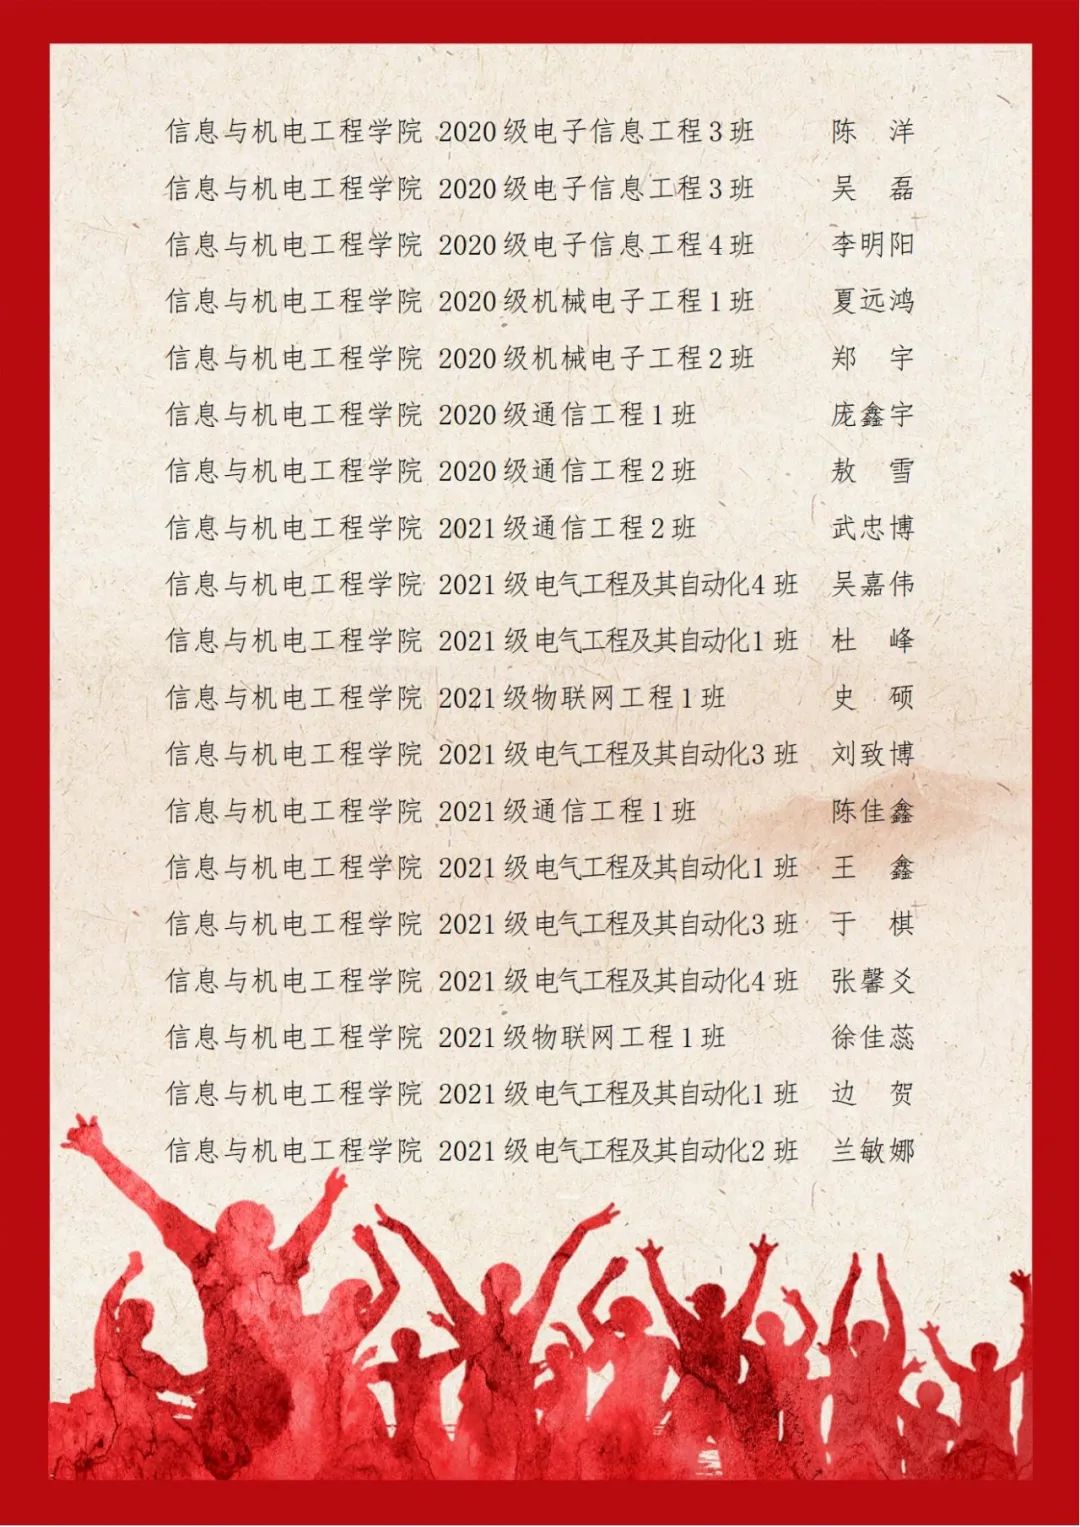 信息与机电工程学院 2020级电子信息工程3班 陈 洋
信息与机电工程学院 2020级电子信息工程3班 吴 磊
信息与机电工程学院 2020级电子信息工程4班 李明阳
信息与机电工程学院 2020级机械电子工程1班 夏远鸿
信息与机电工程学院 2020级机械电子工程2班 郑 宇
信息与机电工程学院 2020级通信工程1班 庞鑫宇
信息与机电工程学院 2020级通信工程2班 敖 雪
信息与机电工程学院 2021级通信工程2班 武忠博
信息与机电工程学院 2021级电气工程及其自动化4班 吴嘉伟
信息与机电工程学院 2021级电气工程及其自动化1班 杜 峰
信息与机电工程学院 2021级物联网工程1班 史 硕
信息与机电工程学院 2021级电气工程及其自动化3班 刘致博
信息与机电工程学院 2021级通信工程1班 陈佳鑫
信息与机电工程学院 2021级电气工程及其自动化1班 王 鑫
信息与机电工程学院 2021级电气工程及其自动化3班 于 棋
信息与机电工程学院 2021级电气工程及其自动化4班 张馨爻
信息与机电工程学院 2021级物联网工程1班 徐佳蕊
信息与机电工程学院 2021级电气工程及其自动化1班 边 贺
信息与机电工程学院 2021级电气工程及其自动化2班 兰敏娜